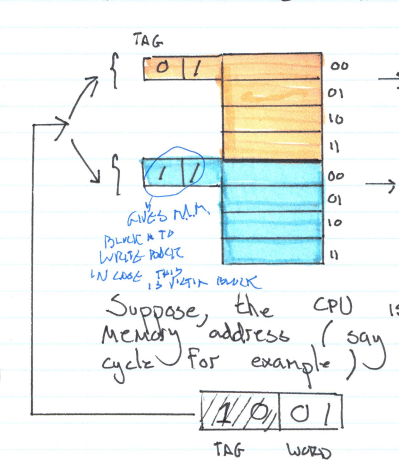 TAG
0 1 00
01
10
11
1 1 00
01
10
11
GIVES M.M
BLOCK # TO
WRITE BACK
IN CASE THIS
IS VICTIM BLOCK
Suppose, the CPU is
Memory address (say
cycle for example)
1 0 0 1
TAG WORD